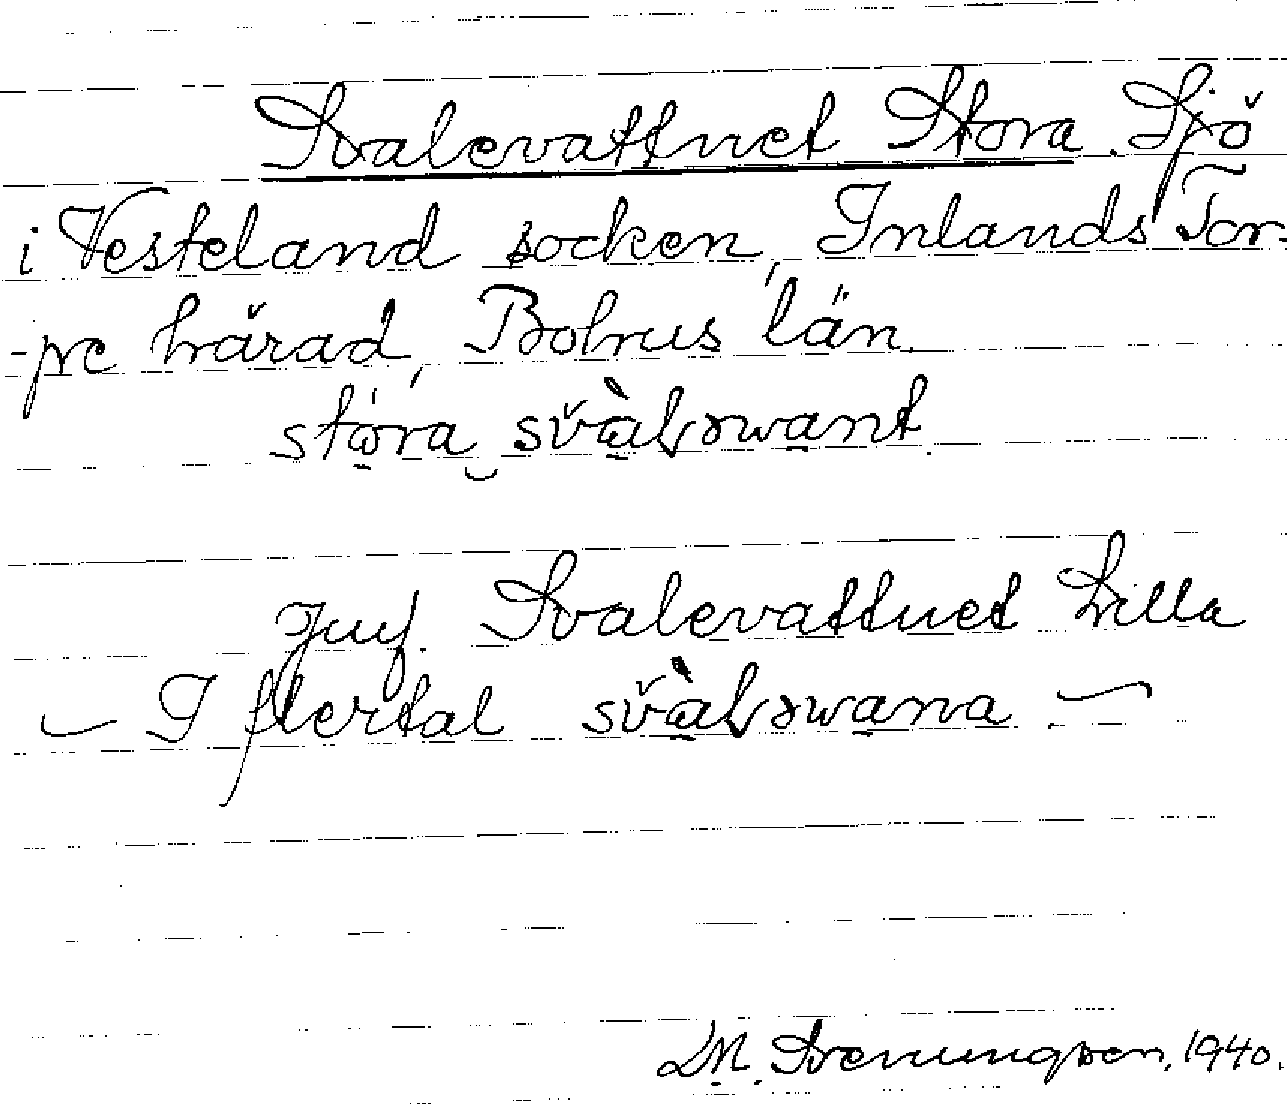 Svalevattnet Stora. Sjö
i Vesterland socken, Inlands Tor-
-pe härad, Bohus län.
stora svàlvwant.
Jmf. Svalevattnet Lilla
— I flertal svàlvwana —
M. Svenungson, 1940.